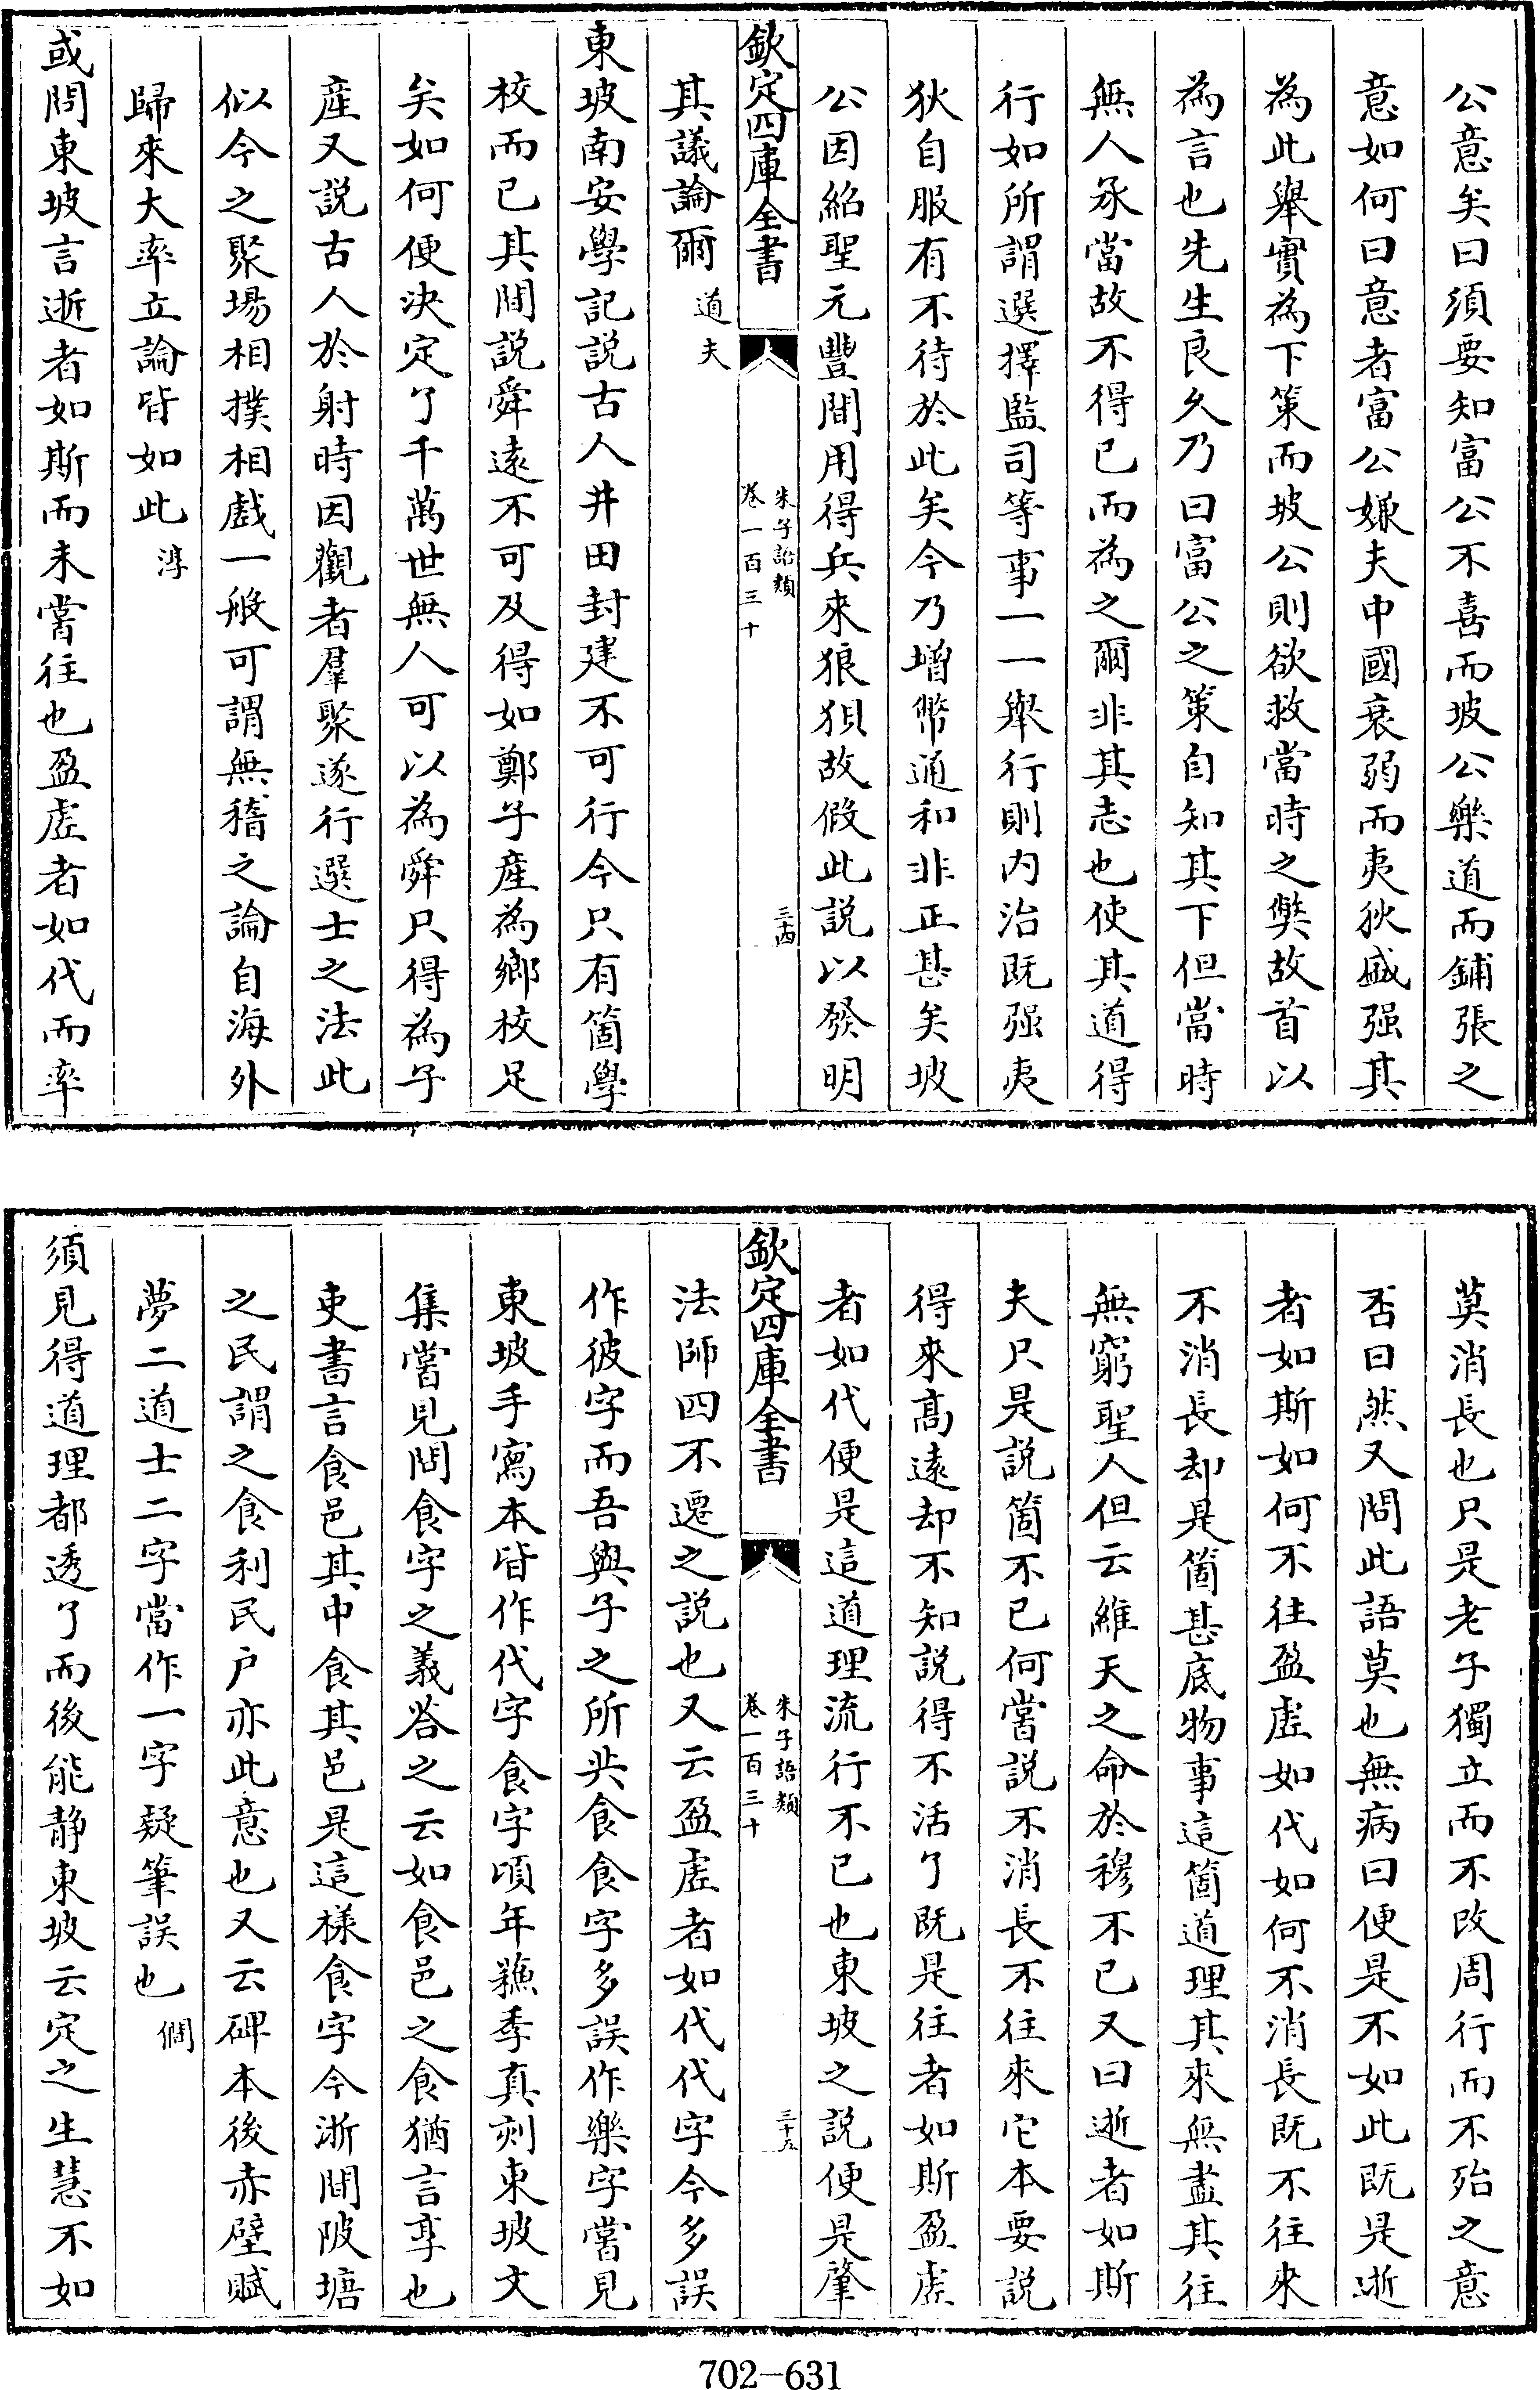 公意矣曰須要知富公不喜而坡公樂道而鋪張之
意如何曰意者富公嫌夫中國衰弱而夷狄盛强其
為此舉實為下策而坡公則欲救當時之獘故首以
為言也先生良久乃曰富公之策自知其下但當時
無人承當故不得已而為之爾非其志也使其道得
行如所謂選擇監司等事一一舉行則内治既强夷
狄自服有不待於此矣今乃增幣通和非正甚矣坡
公因紹聖元豐間用得兵來狼狽故假此說以發明
欽定四庫全書
朱子語類
卷一百三十
三十四
其議論爾道夫
東坡南安學記說古人井田封建不可行今只有箇學
校而已其間說舜遠不可及得如鄭子產為鄉校足
矣如何便決定了千萬世無人可以為舜只得為子
產又說古人於射時因觀者羣聚遂行選士之法此
似今之聚場相撲相戲一般可謂無稽之論自海外
歸來大率立論皆如此淳
或問東坡言逝者如斯而未嘗往也盈虚者如代而率
莫消長也只是老子獨立而不改周行而不殆之意
否曰然又問此語莫也無病曰便是不如此既是逝
者如斯如何不往盈虚如代如何不消長既不往來
不消長却是箇甚底物事這箇道理其來無盡其往
無窮聖人但云維天之命於穆不已又曰逝者如斯
夫只是說箇不已何嘗說不消長不往來它本要說
得來高遠却不知說得不活了既是往者如斯盈虚
者如代便是這道理流行不已也東坡之說便是肇
欽定四庫全書
朱子語類
卷一百三十
三十五
法師四不遷之說也又云盈虚者如代代字今多誤
作彼字而吾與子之所共食食字多誤作樂字嘗見
東坡手寫本皆作代字食字頃年蘓季真刻東坡文
集嘗見問食字之義答之云如食邑之食猶言享也
吏書言食邑其中食其邑是這様食字今浙間陂塘
之民謂之食利民户亦此意也又云碑本後赤壁賦
夢二道士二字當作一字疑筆誤也僩
須見得道理都透了而後能静東坡云定之生慧不如
702-631